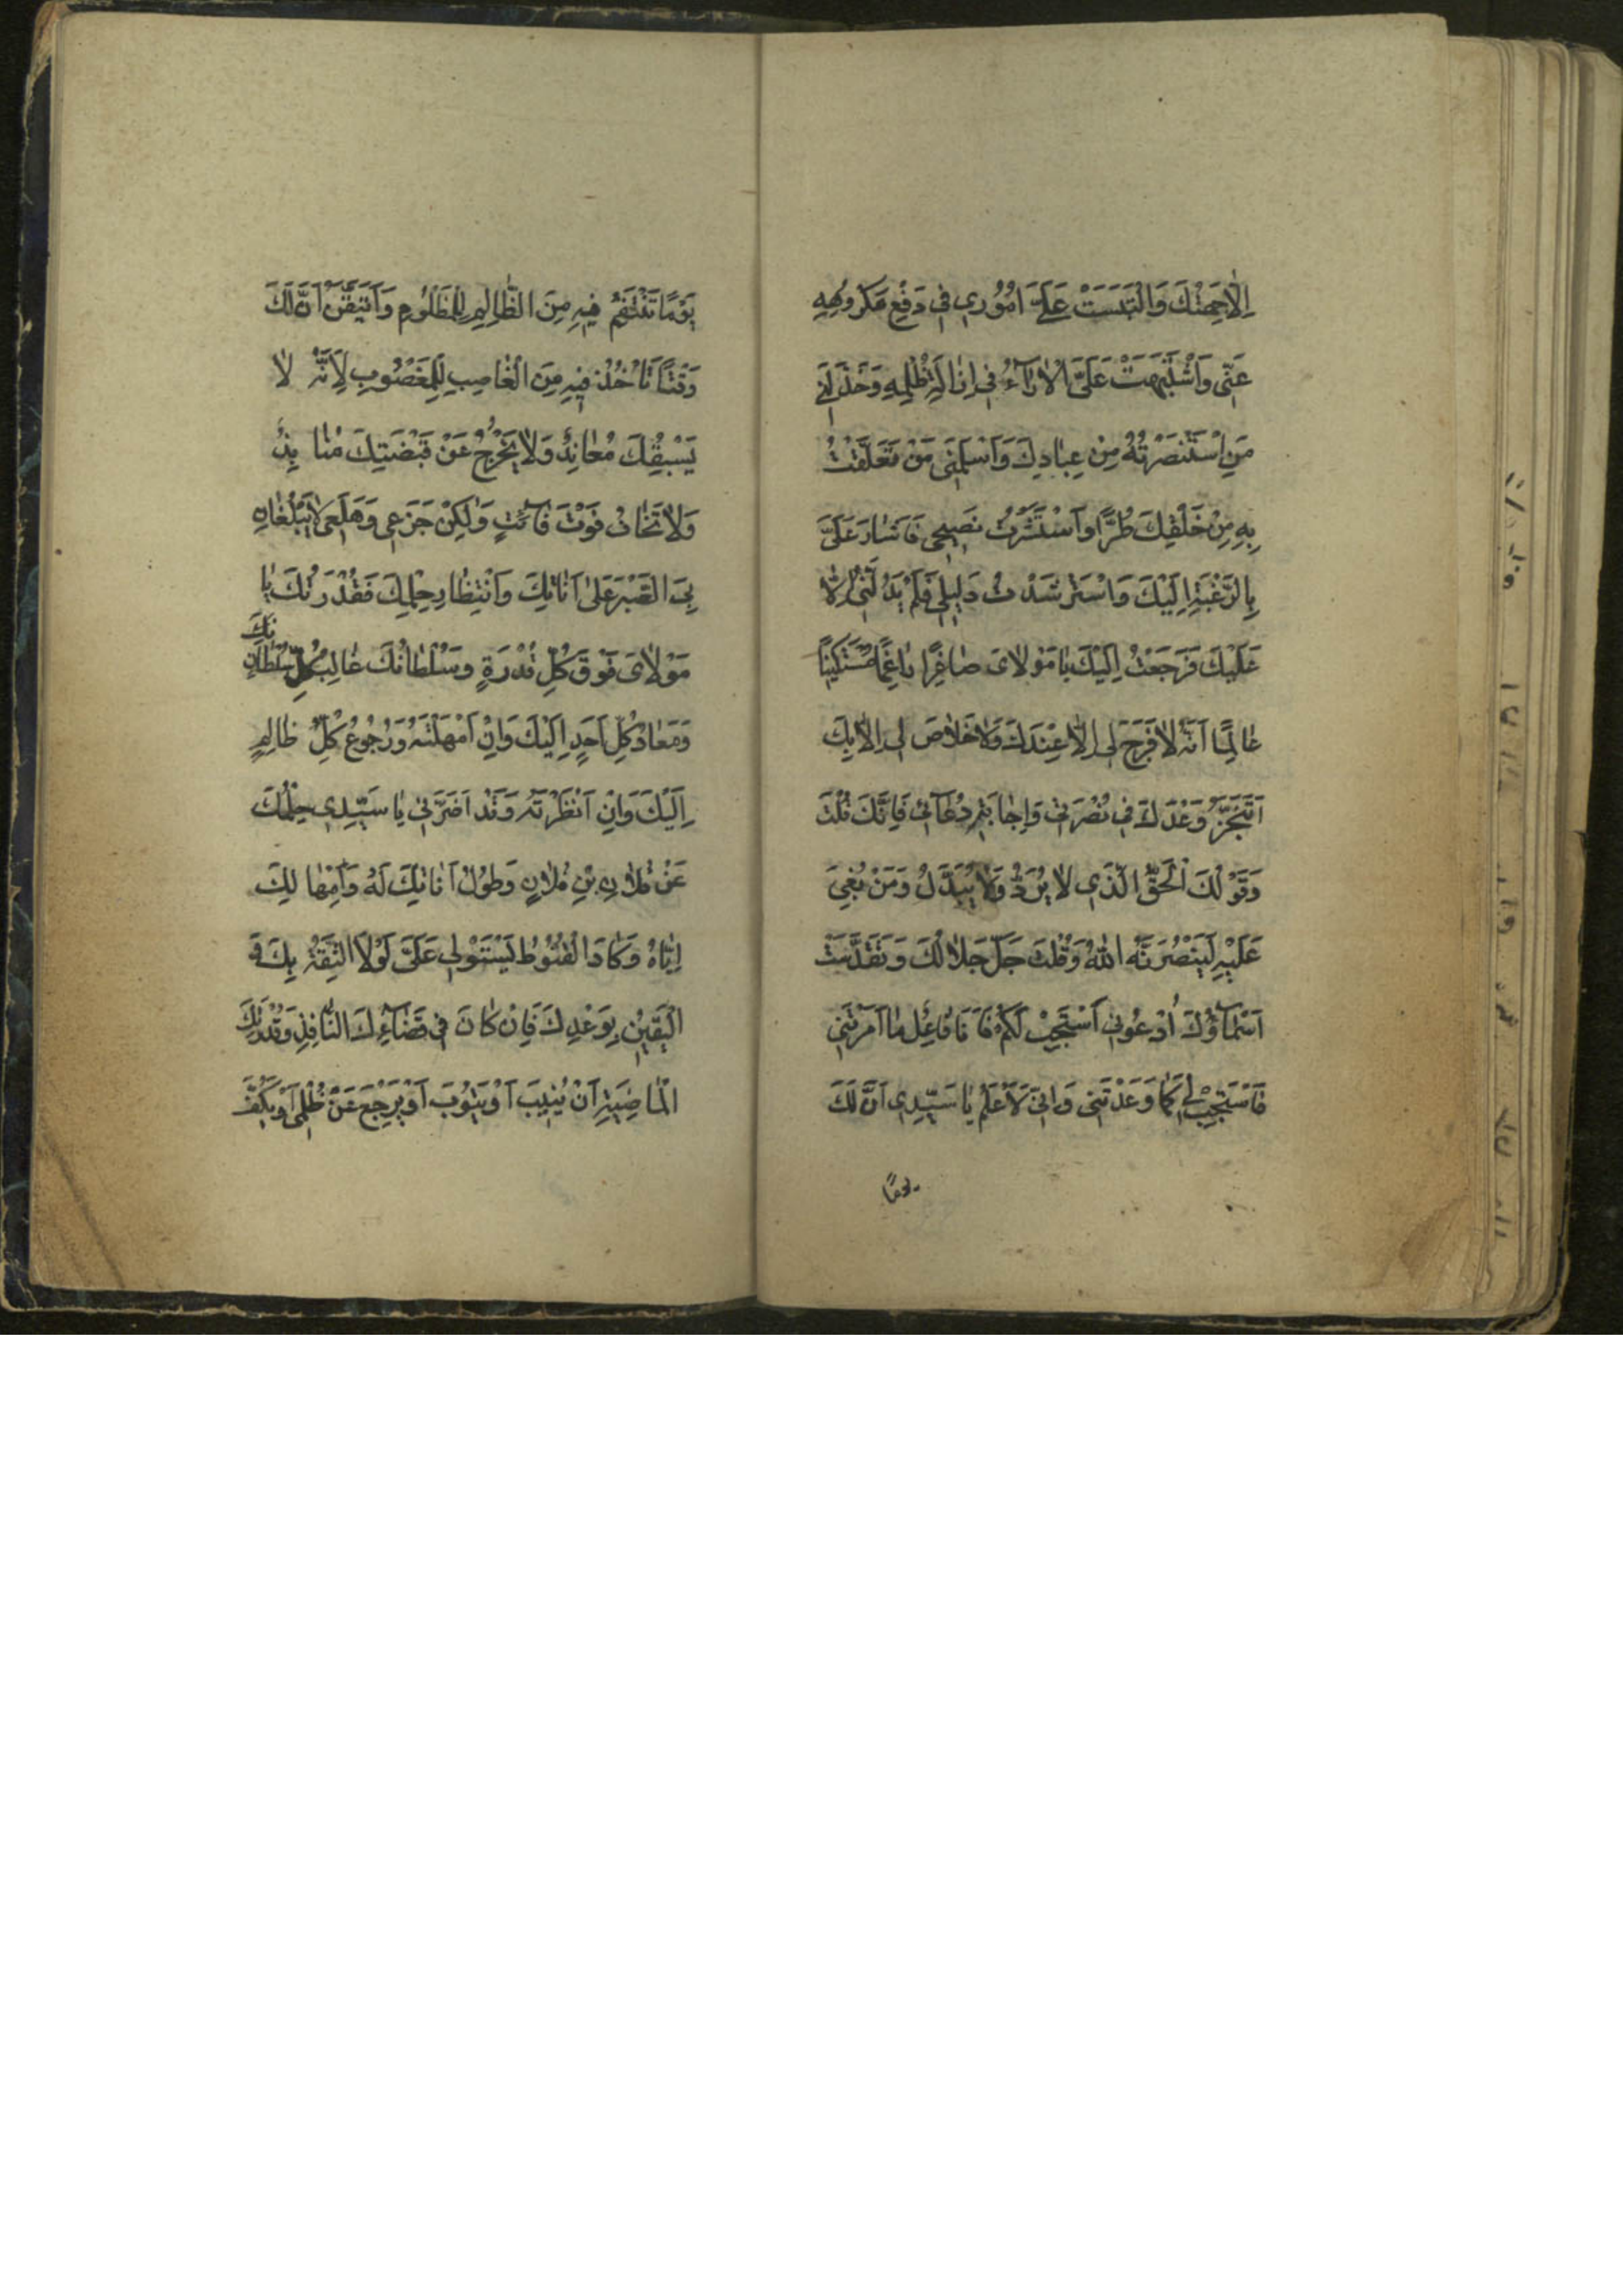 اِلّٰا جِهَتُكَ وَالْتَبَسَتْ عَلَيَّ اُمُوُرِي فِي دَفْعِ مَكْرُوُهِهِ
عَنّى وَاشْتَبَهَتْ عَلَىَّ الْاٰرٰآءُ فِى اِزٰالَةِ ظُلْمِهِ وَخَذَلَنِى
مَنِ اسْتَنْصَرْتُهُ مِنْ عِبٰادِكَ وَاَسْلَمَنِى مَنْ تَعَلَّقْتُ
بِهِ مِنْ خَلْقِكَ طُرًّا واَسْتَشَرْتُ نَصِيحِى فَاَشٰارَ عَلَىَّ
بِالرَّغْبَةِ اِلَيْكَ وَاسْتَرْشَدْتُ دَلِيلِى فَلَمْ يَدُلَّنِى اِلّٰا
عَلَيْكَ فَرَجَعْتُ اِلَيْكَ يٰا مَوْلاٰىَ صٰاغِرًا رٰاغِمًا مُسْتَكِينًا
عٰالِمًا اَنَّهُ لاٰ فَرَجَ لِى اِلّٰا عِنْدَكَ وَلاٰ خَلاٰصَ لِى اِلّٰا بِكَ
اَتَنَجَّزُ وَعْدَكَ فِى نُصْرَتِى وَاِجٰابَةِ دُعٰآئِى فَاِنَّكَ قُلْتَ
وَقَوْلُكَ الْحَقُّ الَّذِى لاٰ يُرَدُّ وَلاٰ يُبَدَّلُ وَمَنْ بُغِىَ
عَلَيْهِ لَيَنْصُرَنَّهُ اللّٰهُ وَقُلْتَ جَلَّ جَلاٰلُكَ وَتَقَدَّسَتْ
اَسْمٰآؤُكَ اُدْعُونِى اَسْتَجِبْ لَكُمْ فَاَنَا فٰاعِلٌ مٰا اَمَرْتَنِى
فَاسْتَجِبْ لِى كَمٰا وَعَدْتَنِى وَاِنِّى لَاَعْلَمُ يٰا سَيِّدِى اَنَّ لَكَ
يومًا
يَوْمًا تَنْتَقِمُ فِيهِ مِنَ الظّٰالِمِ لِلْمَظْلُومِ وَاَتَيَقَّنُ اَنَّ لَكَ
وَقْتًا تَاْخُذُ فِيهِ مِنَ الْغٰاصِبِ لِلْمَغْصُوبِ لِاَنَّهُ لاٰ
يَسْبِقُكَ مُعٰانِدٌ وَلاٰ يَخْرُجُ عَنْ قَبْضَتِكَ مُنٰابِذٌ
وَلاٰ تَخٰافُ فَوْتَ فٰآئِتٍ وَلٰكِنْ جَزَعِى وَهَلَعِى لاٰ يَبْلُغٰانِ
بِىَ الصَّبْرَ عَلىٰ اَنٰاتِكَ وَانْتِظٰارِ حِلْمِكَ فَقُدْرَتُكَ يٰا
مَوْلاٰىَ فَوْقَ كُلِّ قُدْرَةٍ وَسُلْطٰانُكَ غٰالِبُ كُلِّ سُلْطٰانٍ
وَمَعٰادُ كُلِّ اَحَدٍ اِلَيْكَ وَاِنْ اَمْهَلْتَهُ وَرُجُوعُ كُلِّ ظٰالِمٍ
اِلَيْكَ وَاِنْ اَنْظَرْتَهُ وَقَدْ اَضَرَّنِى يٰا سَيِّدِى حِلْمُكَ
عَنْ فُلاٰنِ بْنِ فُلاٰنٍ وَطُوُلُ اَنٰاتِكَ لَهُ وَاِمْهٰالُكَ
اِيّٰاهُ وَكٰادَ الْقُنُوُطُ يَسْتَوْلِى عَلَىَّ لَوْلاَ الثِّقَةُ بِكَ وَ
الْيَقِينُ بِوَعْدِكَ فَاِنْ كٰانَ فِى قَضٰآئِكَ النّٰافِذِ وَقُدْرَتِكَ
الْمٰاضِيَةِ اَنْ يُنِيبَ اَوْ يَتُوبَ اَوْ يَرْجِعَ عَنْ ظُلْمِى اَوْ يَكُفَّ